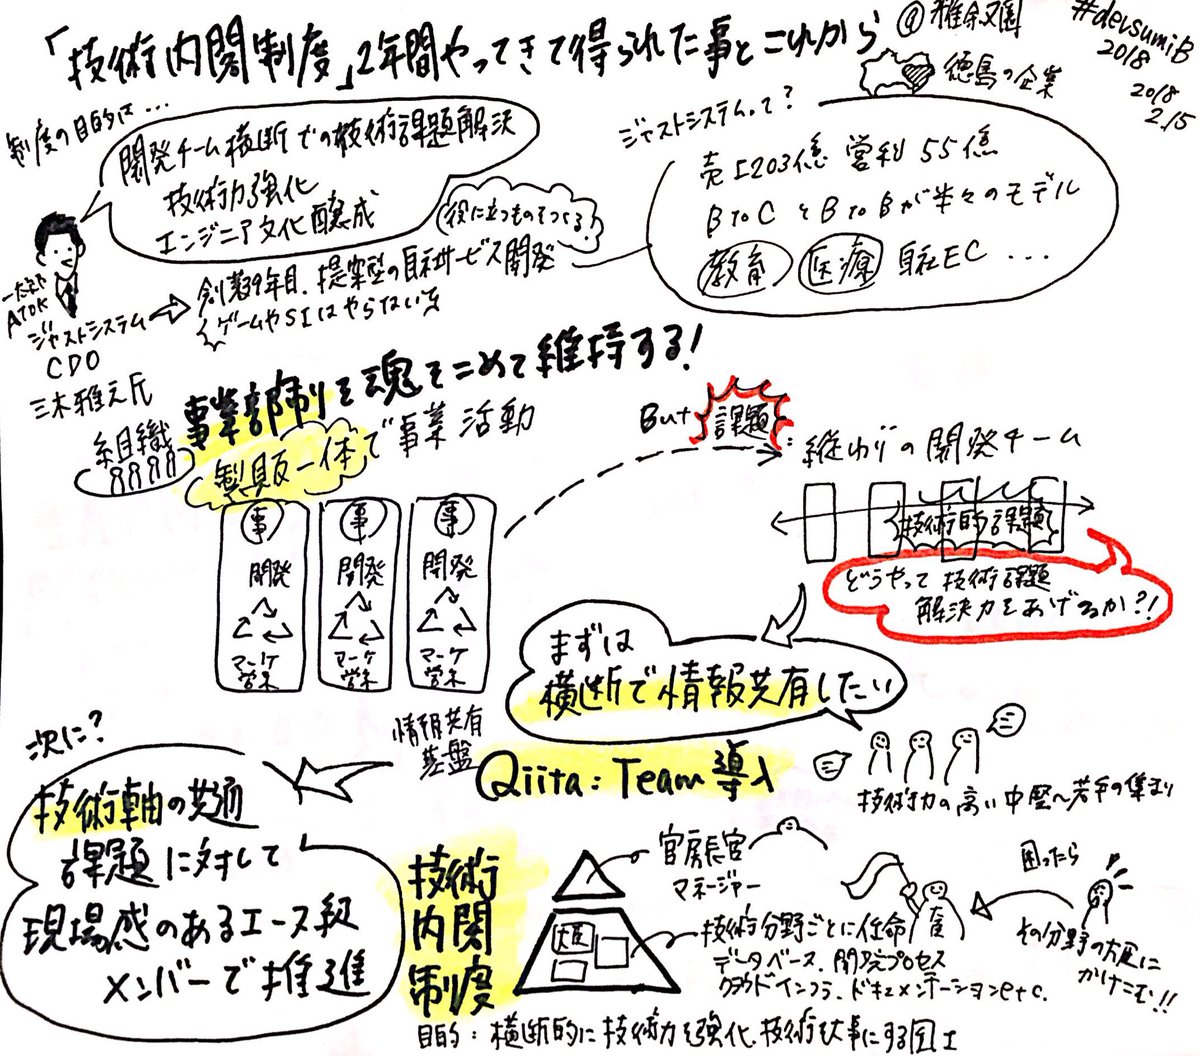 「技術内閣制度」2年間やってきて得られた事とこれから
@雅叙園
#devsumiB
2018
2018
2.15
徳島の企業
制度の目的は…
開発チーム横断での技術課題解決
技術力強化
エンジニア文化醸成
役に立つものをつくる!
ジャストシステムって?
売上203億 営利55億
BtoCとBtoBが半々のモデル
教育 医療 自社EC ...
創業39年目、提案型の自社サービス開発
ゲームやSIはやらない
ATOK
ジャストシステム
CDO
三木雅之氏
組織
事業部制を魂をこめて維持する!
製販一体で事業活動
事 事 事
開発 開発 開発
マーケ マーケ マーケ
営業 営業 営業
But 課題:縦わりの開発チーム
技術的課題
どうやって技術課題
解決力をあげるか?!
まずは
横断で情報共有したい
情報共有
基盤
Qiita:Team導入
技術力の高い中堅〜若手の集まり
次に?
技術軸の共通
課題に対して
現場感のあるエース級
メンバーで推進
技術
内閣
制度
官房長官
マネージャー
技術分野ごとに任命
データベース、開発プロセス
クラウドインフラ、ドキュメンテーションetc.
困ったら
その分野の大臣に
かけこむ!!
目的:横断的に技術力を強化、技術を大事にする風土